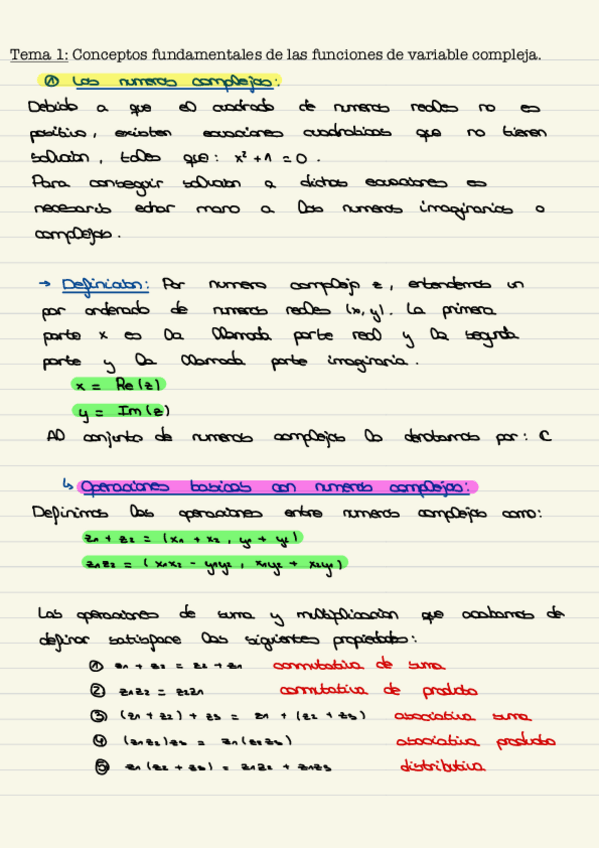 Tema 1: Conceptos fundamentales de las funciones de variable compleja.
① Los numeros complejos:
Debido a que el cuadrado de numeros reales no es
positivo, existen ecuaciones cuadraticas que no tienen
solucion, tales que: x² + 1 = 0.
Para conseguir solucion a dichas ecuaciones es
necesario echar mano a los numeros imaginarios o
complejos.
→ Definicion: Por numero complejo z, entendemos un
par ordenado de numeros reales (x, y). La primera
parte x es la llamada parte real y la segunda
parte y la llamada parte imaginaria.
x = Re(z)
y = Im(z)
Al conjunto de numeros complejos lo denotamos por: ℂ
↳ Operaciones basicas con numeros complejos:
Definimos las operaciones entre numeros complejos como:
z₁ + z₂ = (x₁ + x₂, y₁ + y₂)
z₁z₂ = (x₁x₂ - y₁y₂, x₁y₂ + x₂y₁)
Las operaciones de suma y multiplicacion que acabamos de
definir satisface las siguientes propiedades:
① z₁ + z₂ = z₂ + z₁ conmutativa de suma
② z₁z₂ = z₂z₁ conmutativa de producto
③ (z₁ + z₂) + z₃ = z₁ + (z₂ + z₃) asociativa suma
④ (z₁z₂)z₃ = z₁(z₂z₃) asociativa producto
⑤ z₁(z₂ + z₃) = z₁z₂ + z₁z₃ distributiva